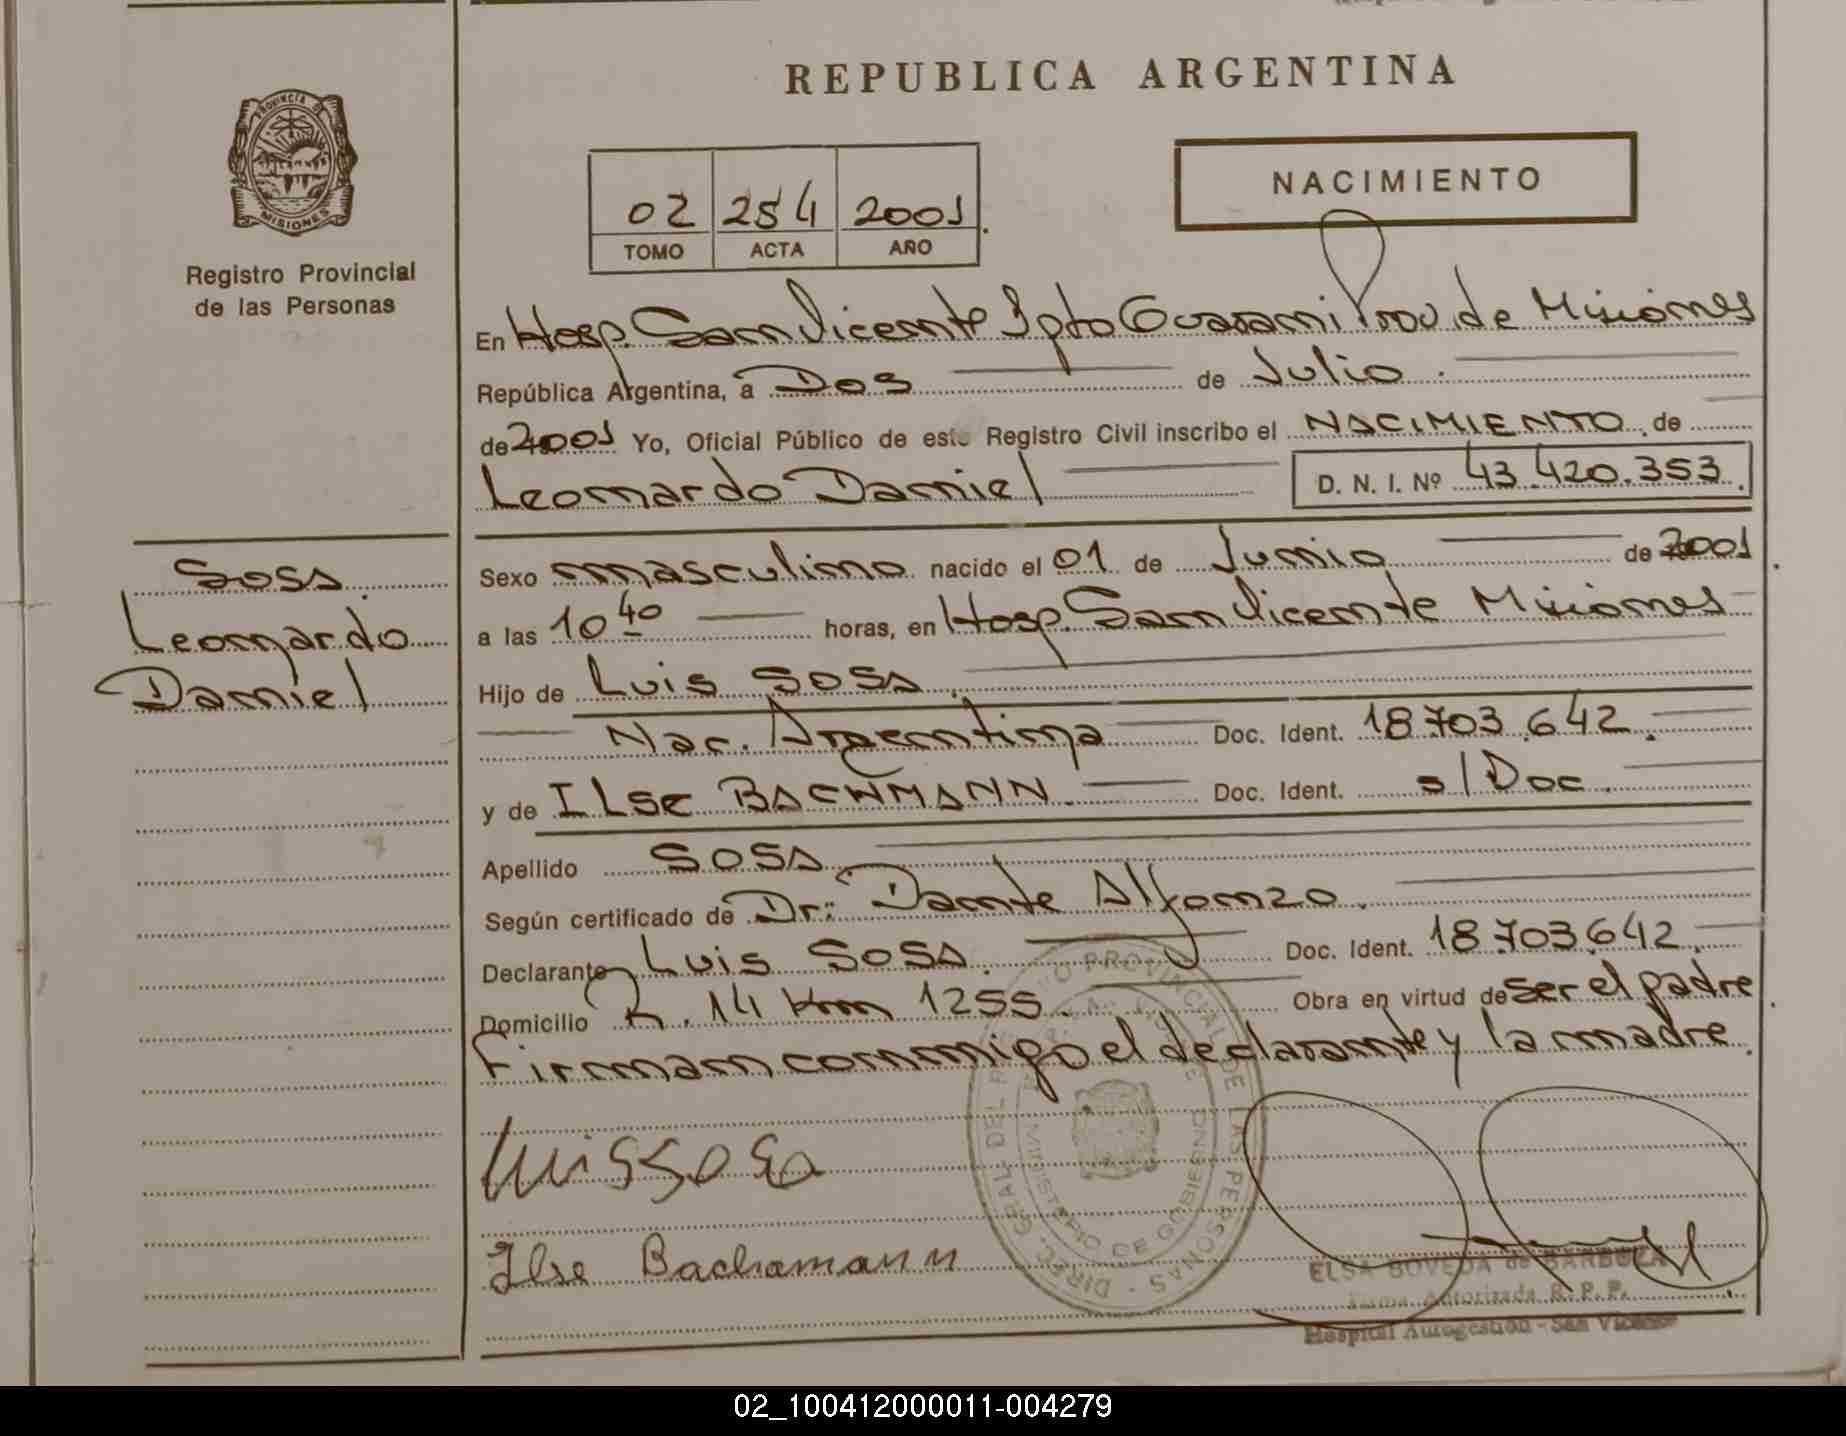 REPUBLICA ARGENTINA
PROVINCIA DE
MISIONES
Registro Provincial
de las Personas
NACIMIENTO
02 254 2001
TOMO ACTA AÑO
En Hosp. San Vicente Dpto Guarani Prov. de Misiones
República Argentina, a Dos de Julio
de 2001 Yo, Oficial Público de este Registro Civil inscribo el NACIMIENTO de
Leonardo Daniel D. N. I. Nº 43.420.353
Sosa
Leonardo
Daniel
Sexo masculino nacido el 01 de Junio de 2001
a las 10 40 horas, en Hosp. San Vicente Misiones
Hijo de Luis SOSA
Nac. Argentina Doc. Ident. 18.703.642.
y de ILse BACHMANN. Doc. Ident. s/Doc.
Apellido SOSA
Según certificado de Dr.: Dante Alfonzo.
Declarante Luis SOSA. Doc. Ident. 18.703.642.
Domicilio R. 14 Km 1255. Obra en virtud de ser el padre
Firman conmigo el declarante y la madre.
Luis Sosa
Ilse Bachamann
DIREC. GRAL. DEL PROVINCIAL DE LAS PERSONAS
MINISTERIO DE GOBIERNO
ELSA BOVEDA de BARBOZA
Firma Autorizada R. P. P.
Hospital Autogestión - San Vicente
02_100412000011-004279